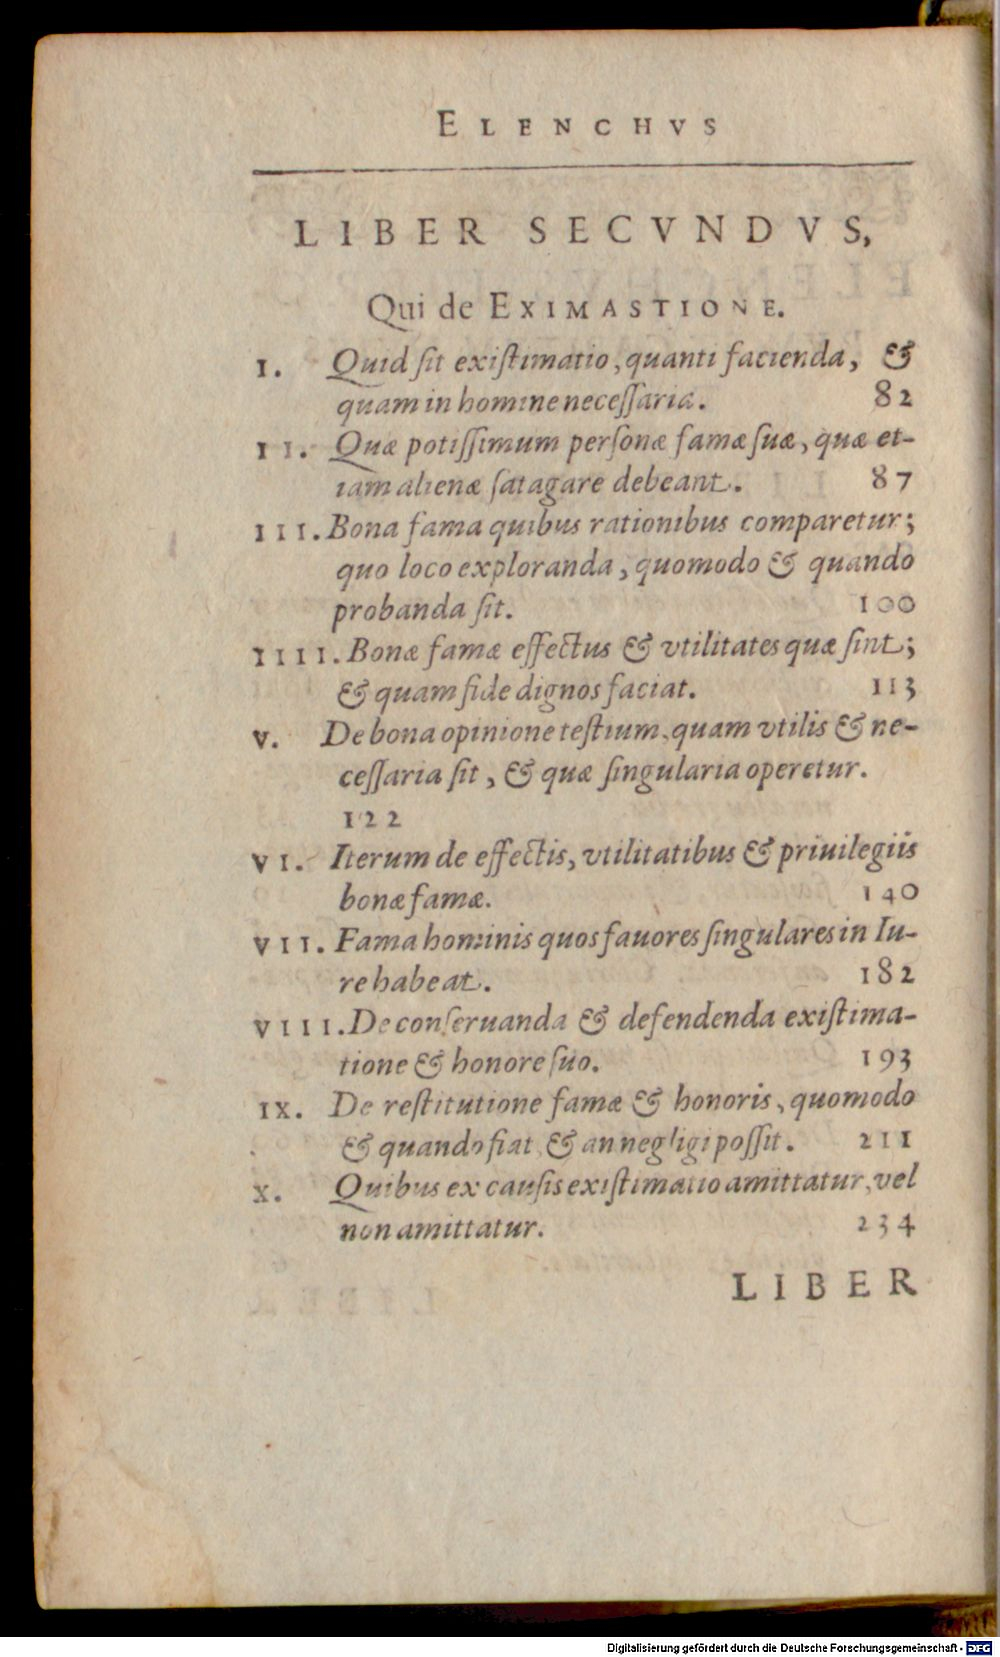 ELENCHVS
LIBER SECVNDVS,
Qui de EXIMASTIONE.
I. Quid ſit exiſtimatio, quanti facienda, &
quam in homine neceſſaria. 82
II. Quæ potiſſimum perſonæ famæ ſuæ, quæ et-
iam alienæ ſatagare debeant. 87
III. Bona fama quibus rationibus comparetur;
quo loco exploranda, quomodo & quando
probanda ſit. 100
IIII. Bonæ famæ effectus & vtilitates quæ ſint;
& quam fide dignos faciat. 113
V. De bona opinione teſtium, quam vtilis & ne-
ceſſaria ſit, & quæ ſingularia operetur.
122
VI. Iterum de effectis, vtilitatibus & priuilegiis
bonæ famæ. 140
VII. Fama hominis quos fauores ſingulares in Iu-
re habeat. 182
VIII. De conſeruanda & defendenda exiſtima-
tione & honore ſuo. 193
IX. De reſtitutione famæ & honoris, quomodo
& quando fiat, & an negligi poſſit. 211
X. Quibus ex cauſis exiſtimatio amittatur, vel
non amittatur. 234
LIBER
Digitalisierung gefördert durch die Deutsche Forschungsgemeinschaft - DFG